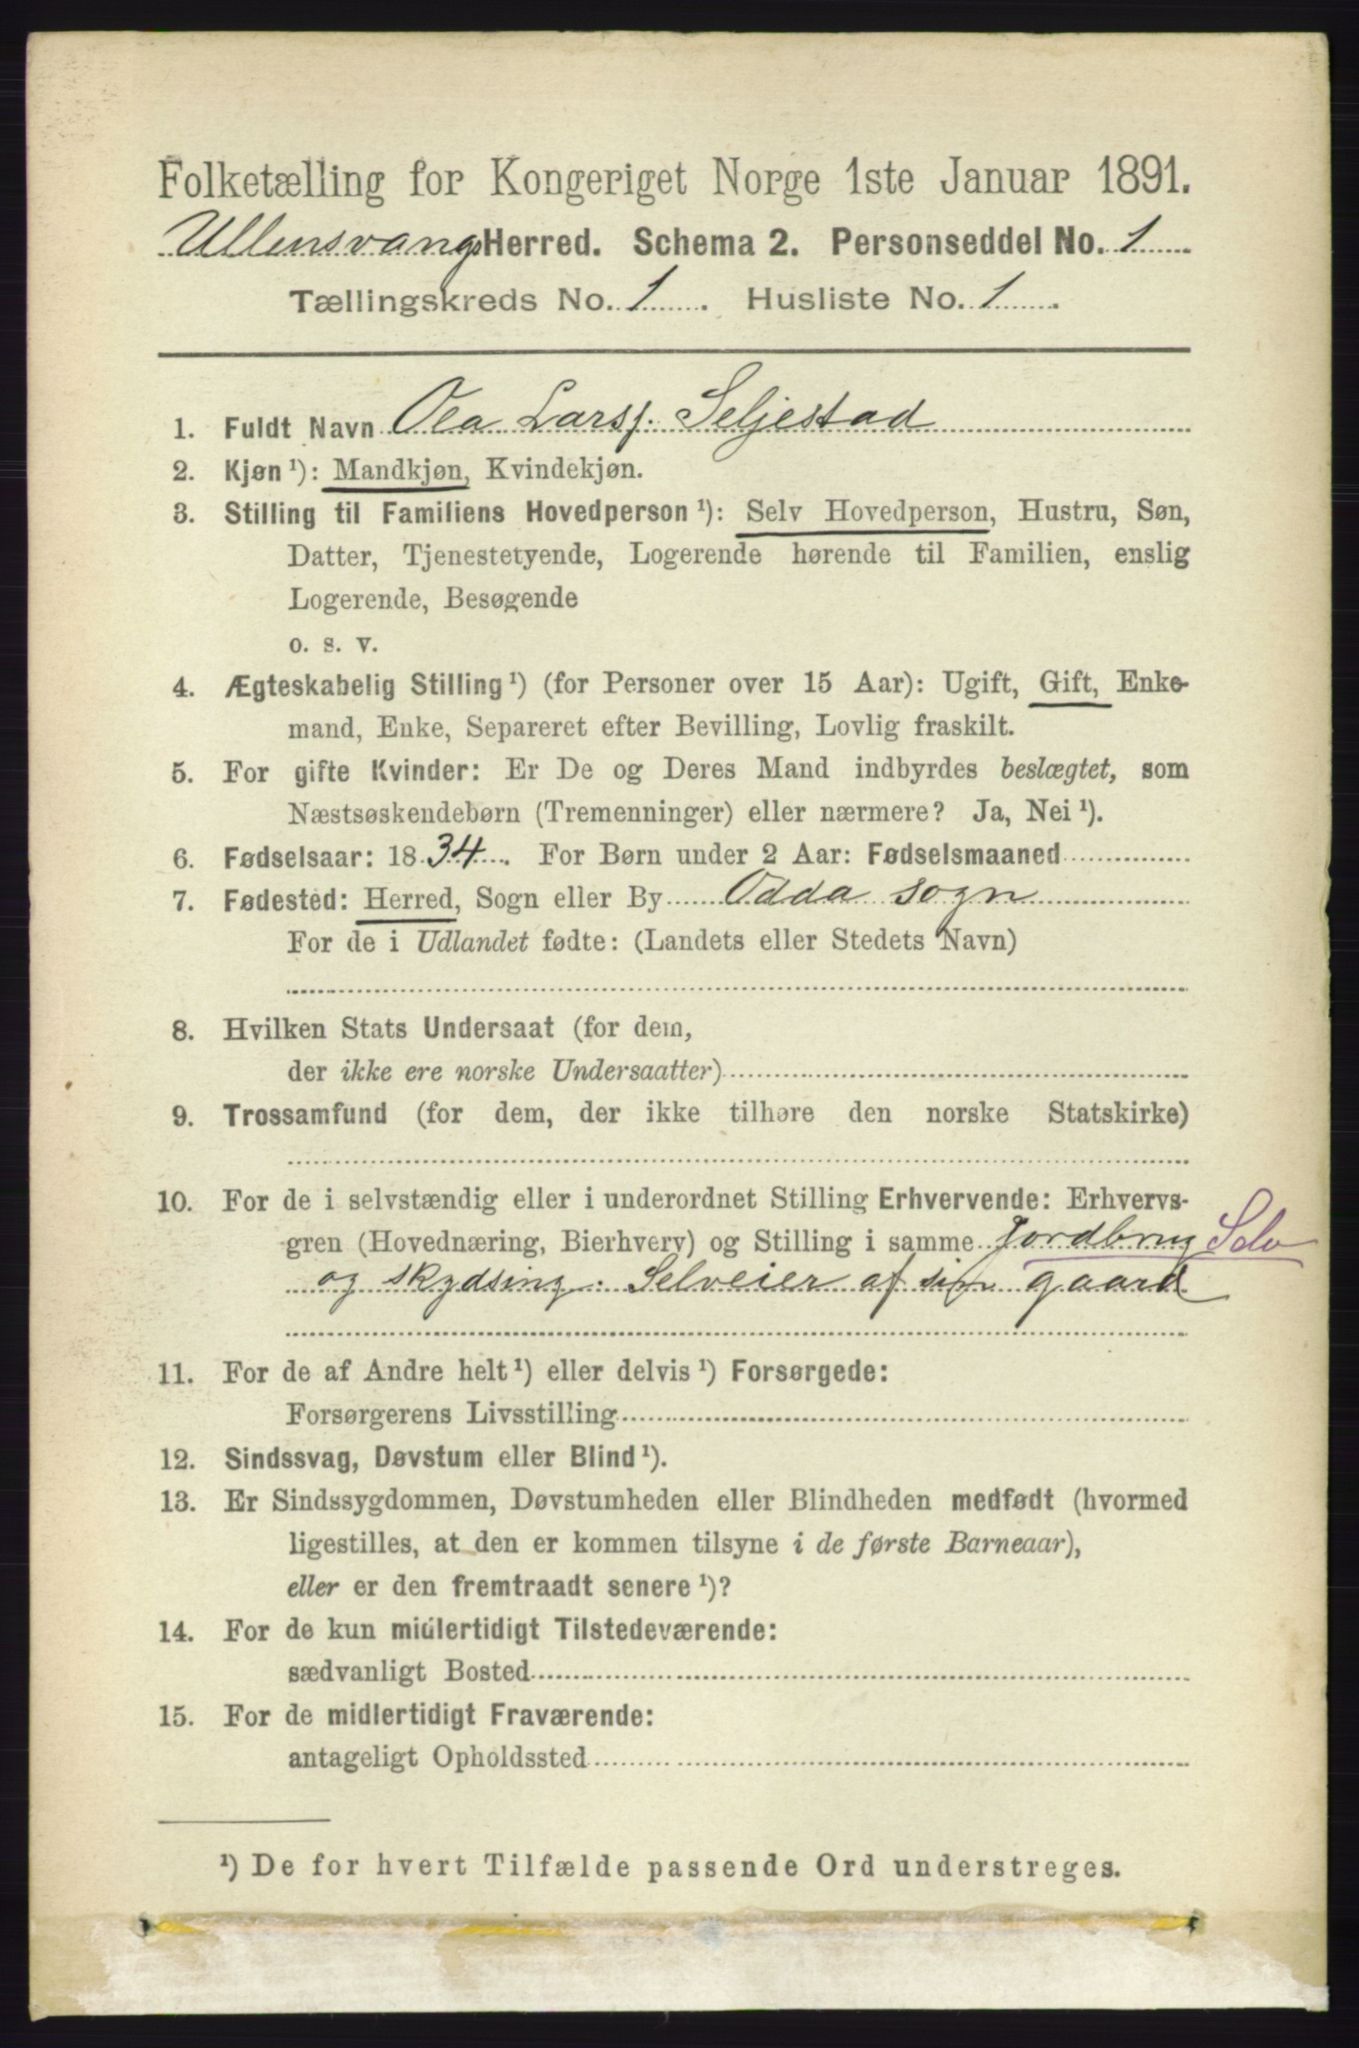 Folketælling for Kongeriget Norge 1ste Januar 1891.
Ullensvangs Herred. Schema 2. Personseddel No. 1
Tællingskreds No. 1. Husliste No. 1
1. Fuldt Navn Ola Larss. Seljestad
2. Kjøn ¹): Mandkjøn, Kvindekjøn.
3. Stilling til Familiens Hovedperson ¹): Selv Hovedperson, Hustru, Søn,
Datter, Tjenestetyende, Logerende hørende til Familien, enslig
Logerende, Besøgende
o. s. v.
4. Ægteskabelig Stilling ¹) (for Personer over 15 Aar): Ugift, Gift, Enke-
mand, Enke, Separeret efter Bevilling, Lovlig fraskilt.
5. For gifte Kvinder: Er De og Deres Mand indbyrdes beslægtet, som
Næstsøskendebørn (Tremenninger) eller nærmere? Ja, Nei ¹).
6. Fødselsaar: 1834. For Børn under 2 Aar: Fødselsmaaned
7. Fødested: Herred, Sogn eller By Odda sogn
For de i Udlandet fødte: (Landets eller Stedets Navn)
8. Hvilken Stats Undersaat (for dem,
der ikke ere norske Undersaatter)
9. Trossamfund (for dem, der ikke tilhøre den norske Statskirke)
10. For de i selvstændig eller i underordnet Stilling Erhvervende: Erhvervs-
gren (Hovednæring, Bierhverv) og Stilling i samme Jordbrug Selv
og skydsing. Selveier af sin gaard
11. For de af Andre helt ¹) eller delvis ¹) Forsørgede:
Forsørgerens Livsstilling
12. Sindssvag, Døvstum eller Blind ¹).
13. Er Sindssygdommen, Døvstumheden eller Blindheden medfødt (hvormed
ligestilles, at den er kommen tilsyne i de første Barneaar),
eller er den fremtraadt senere ¹)?
14. For de kun midlertidigt Tilstedeværende:
sædvanligt Bosted
15. For de midlertidigt Fraværende:
antageligt Opholdssted
¹) De for hvert Tilfælde passende Ord understreges.